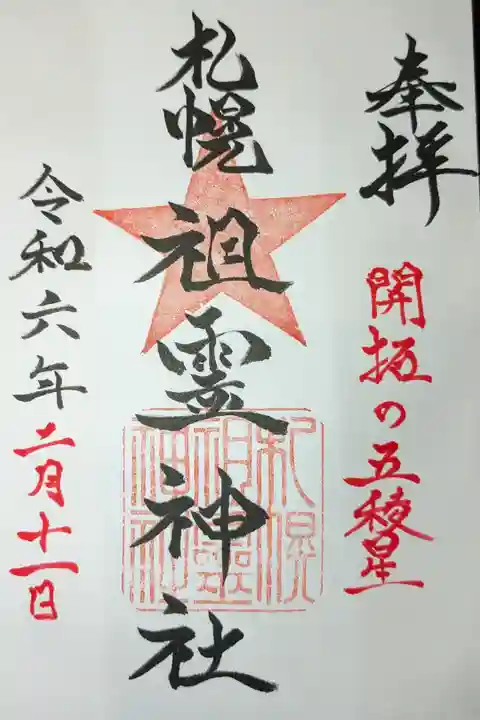 奉拝
開拓の五稜星
札幌祖霊神社
札幌
祖霊
神社
令和六年二月十一日